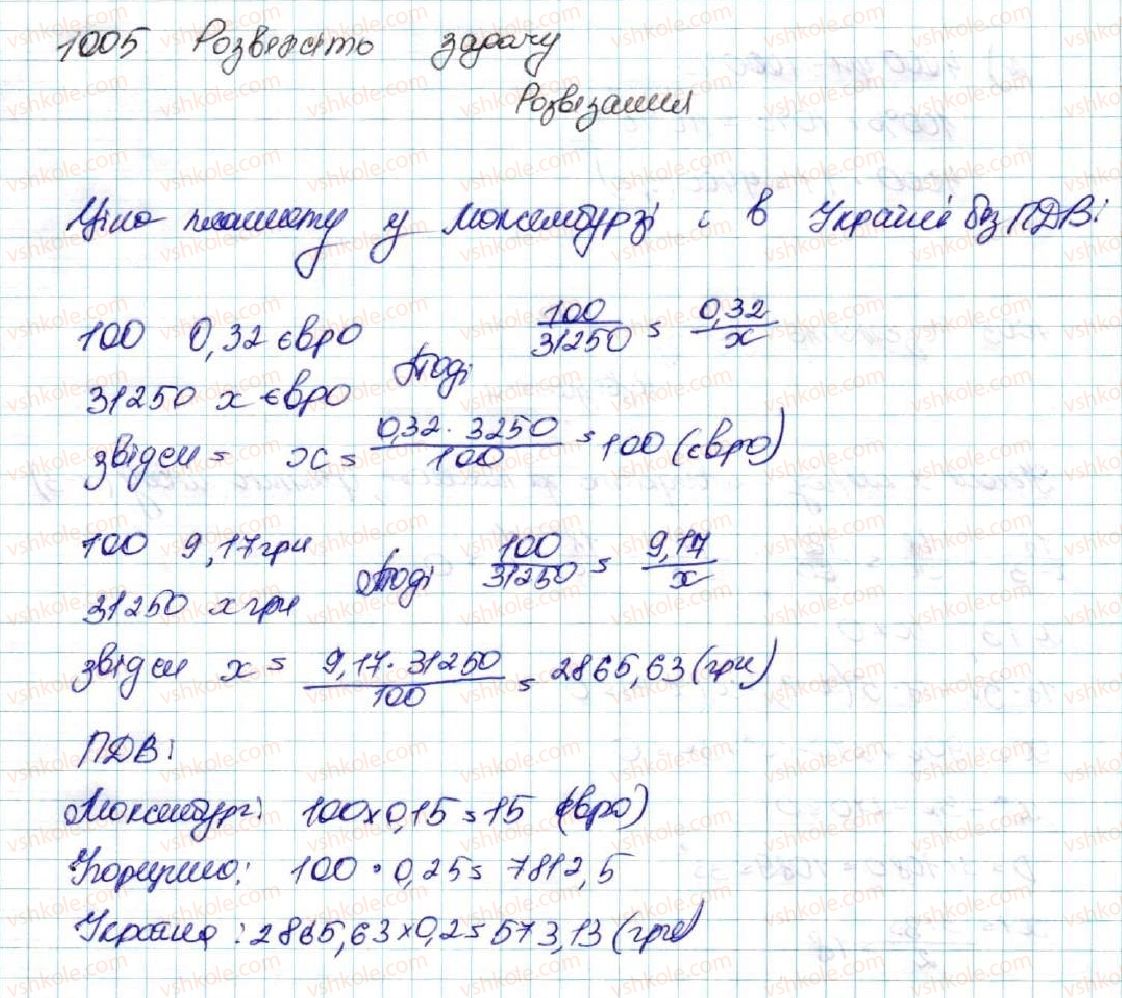 1005 Розвяжіть задачу
Розвязання
Ціна планшету у Люксембурзі і в Україні без ПДВ:
100 0,32 євро
31250 x євро
Тоді 100/31250 = 0,32/x
звідси = x = 0,32 · 3250/100 = 100 (євро)
100 9,17 грн
31250 x грн
Тоді 100/31250 = 9,17/x
звідси x = 9,17 · 31250/100 = 2865,63 (грн)
ПДВ:
Люксембург: 100 x 0,15 = 15 (євро)
Угорщина: 100 · 0,25 = 7812,5
Україна: 2865,63 x 0,2 = 573,13 (грн)
vshkole.com